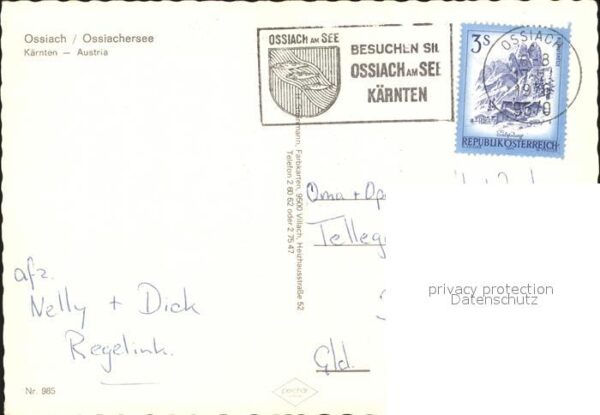 Ossiach / Ossiachersee
Kärnten — Austria
OSSIACH AM SEE
BESUCHEN SIE
OSSIACH AM SEE
KÄRNTEN
3 S
OSSIACH
9570
REPUBLIK ÖSTERREICH
Farbkarten, 9500 Villach, Heizhausstraße 52
Telefon 2 60 62 oder 2 75 47
Oma + Opa
Telleg
Gld.
afz.
Nelly + Dick
Regelink.
privacy protection
Datenschutz
Nr. 985